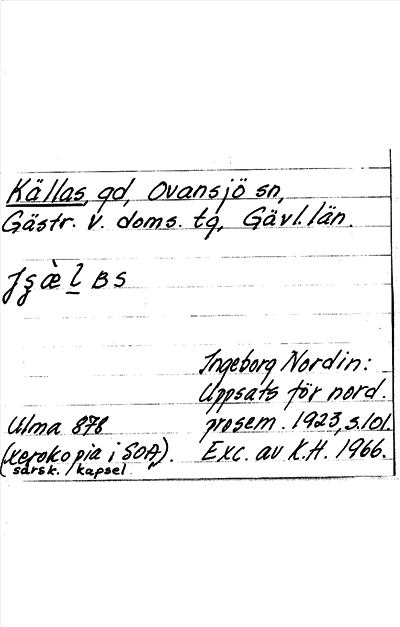 Källas, gd, Ovansjö sn,
Gästr. v. doms. tg, Gävl. län.
Ingeborg Nordin:
Uppsats för nord.
Ulma 878 prosem. 1923, s. 101.
(xerokopia i SOA). Exc. av K.H. 1966.
särsk. kapsel